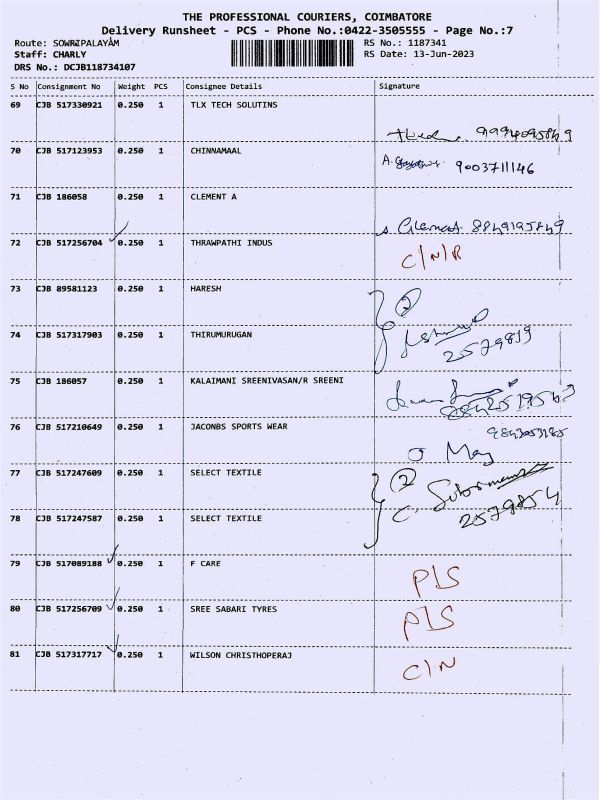 THE PROFESSIONAL COURIERS, COIMBATORE
Delivery Runsheet - PCS - Phone No.:0422-3505555 - Page No.:7
Route: SOWRIPALAYAM
RS No.: 1187341
Staff: CHARLY
RS Date: 13-Jun-2023
DRS No.: DCJB118734107
S No Consignment No Weight PCS Consignee Details Signature
69 CJB 517330921 0.250 1 TLX TECH SOLUTINS
70 CJB 517123953 0.250 1 CHINNAMAAL
9003711146
71 CJB 186058 0.250 1 CLEMENT A
72 CJB 517256704 0.250 1 THRAWPATHI INDUS
C/N/R
73 CJB 89581123 0.250 1 HARESH
2
74 CJB 517317903 0.250 1 THIRUMURUGAN
2579819
75 CJB 186057 0.250 1 KALAIMANI SREENIVASAN/R SREENI
76 CJB 517210649 0.250 1 JACONBS SPORTS WEAR
77 CJB 517247609 0.250 1 SELECT TEXTILE
2
78 CJB 517247587 0.250 1 SELECT TEXTILE
2579854
79 CJB 517089188 0.250 1 F CARE
P/S
80 CJB 517256709 0.250 1 SREE SABARI TYRES
P/S
81 CJB 517317717 0.250 1 WILSON CHRISTHOPERAJ
C/N